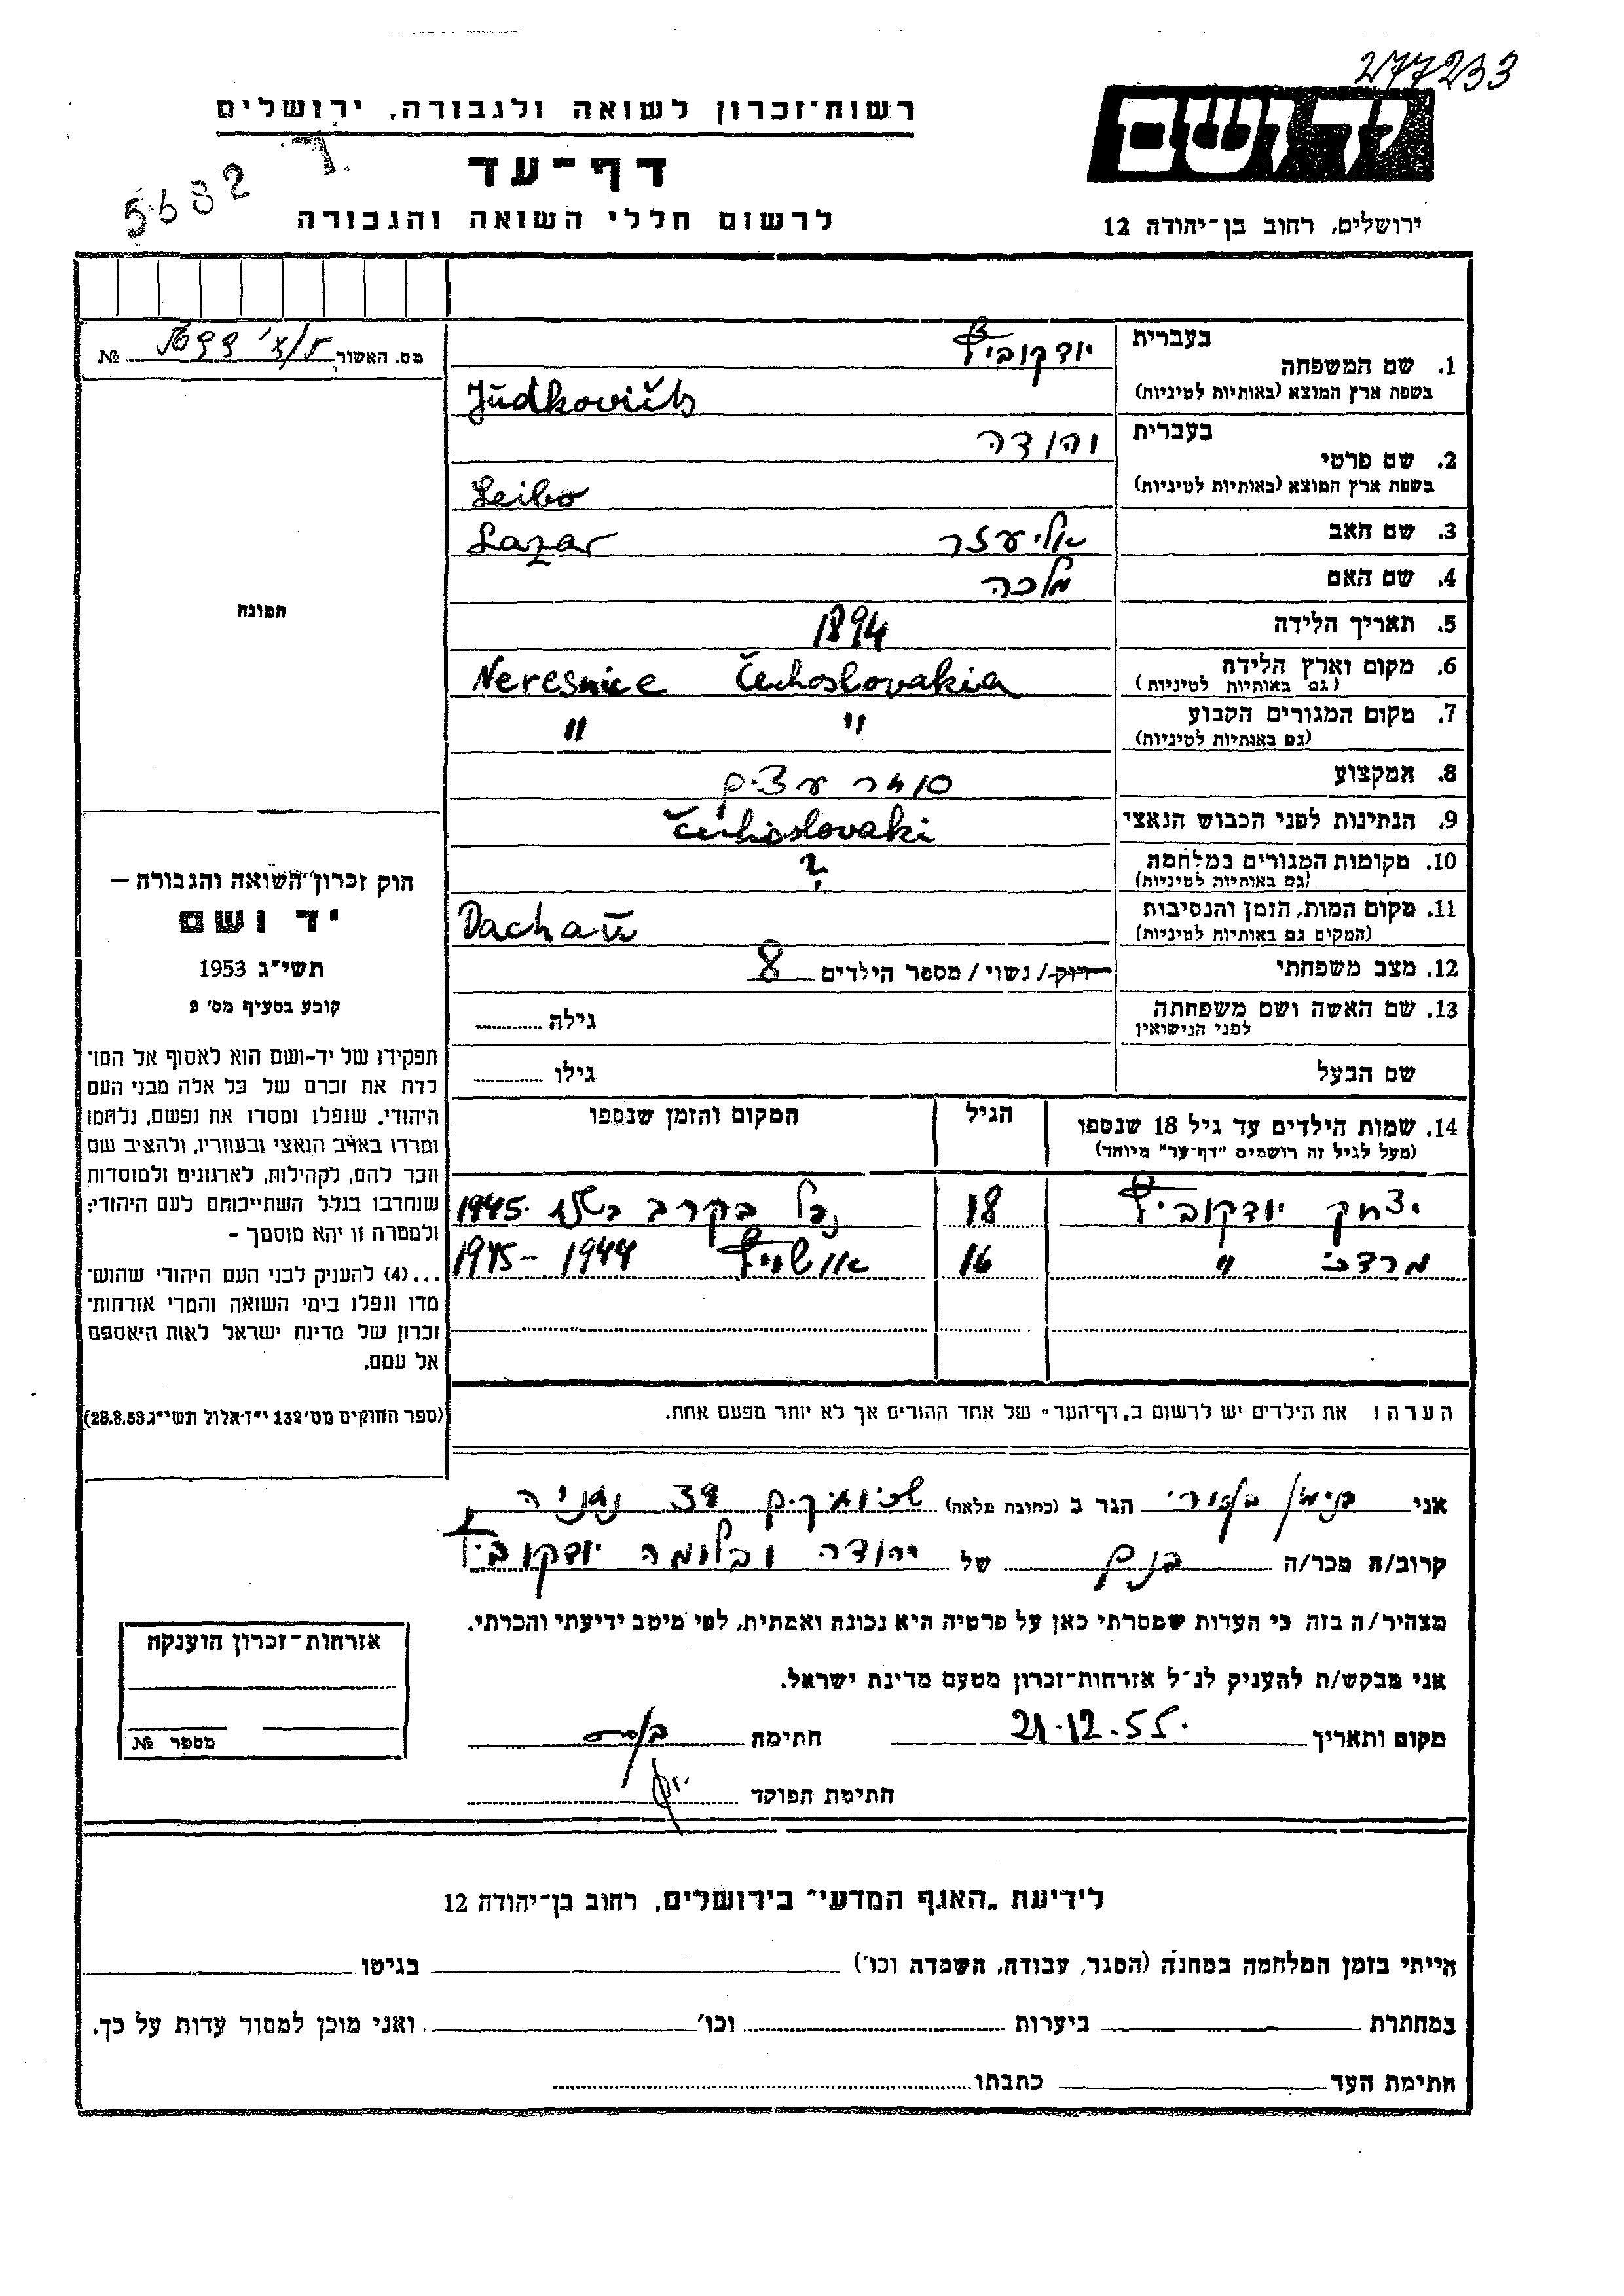 277233
רשות־זכרון לשואה ולגבורה, ירושלים
ידושם
דף־עד
לרשום חללי השואה והגבורה
ירושלים, רחוב בן־יהודה 12
מס. האשור №
1. שם המשפחה
בעברית יודקוביץ
בשפת ארץ המוצא (באותיות לטיניות) Jŭdkovičts
2. שם פרטי
בעברית
בשפת ארץ המוצא (באותיות לטיניות) Leibo
3. שם האב אליעזר Lazar
4. שם האם מלכה
תמונה
5. תאריך הלידה 1894
6. מקום וארץ הלידה Neresnice Čechoslovakia
(גם באותיות לטיניות)
7. מקום המגורים הקבוע " "
(גם באותיות לטיניות)
8. המקצוע סוחר עצים
9. הנתינות לפני הכבוש הנאצי Čechoslovaki
10. מקומות המגורים במלחמה ?
(גם באותיות לטיניות)
11. מקום המות, הזמן והנסיבות Dachaŭ
(המקום גם באותיות לטיניות)
12. מצב משפחתי רווק/ נשוי / מספר הילדים 8
13. שם האשה ושם משפחתה גילה
לפני הנישואין
שם הבעל גילו
חוק זכרון השואה והגבורה —
יד ושם
תשי״ג 1953
קובע בסעיף מס׳ 2
תפקידו של יד-ושם הוא לאסוף אל המו־
לדת את זכרם של כל אלה מבני העם
היהודי, שנפלו ומסרו את נפשם, נלחמו
ומרדו באויב הנאצי ובעוזריו, ולהציב שם
וזכר להם, לקהילות, לארגונים ולמוסדות
שנחרבו בגלל השתייכותם לעם היהודי;
ולמטרה זו יהא מוסמך –
...(4) להעניק לבני העם היהודי שהוש־
מדו ונפלו בימי השואה והמרי אזרחות־
זכרון של מדינת ישראל לאות היאספם
אל עמם.
(ספר החוקים מס׳ 132 י״ז אלול תשי״ג 28.8.53)
14. שמות הילדים עד גיל 18 שנספו הגיל המקום והזמן שנספו
(מעל לגיל זה רושמים "דף־עד" מיוחד)
יצחק יודקוביץ 18 נפל בקרב 1945
מרדכי " 16 אושויץ 1944 – 1945
הערה: את הילדים יש לרשום ב„דף־העד" של אחד ההורים אך לא יותר מפעם אחת.
אני הגר ב (כתובת מלאה) 39 נתניה
קרוב/ה מכר/ה בנם של יהודה ובלומה יודקוביץ
מצהיר/ה בזה כי העדות שמסרתי כאן על פרטיה היא נכונה ואמתית, לפי מיטב ידיעתי והכרתי.
אני מבקש/ת להעניק לנ״ל אזרחות־זכרון מטעם מדינת ישראל.
מקום ותאריך 21.12.55 חתימה
חתימת הפוקד
אזרחות־זכרון הוענקה
מספר №
לידיעת „האגף המדעי" בירושלים, רחוב בן־יהודה 12
הייתי בזמן המלחמה במחנה (הסגר, עבודה, השמדה וכו׳) בגיטו
במחתרת ביערות וכו׳ ואני מוכן למסור עדות על כך.
חתימת העד כתבתו